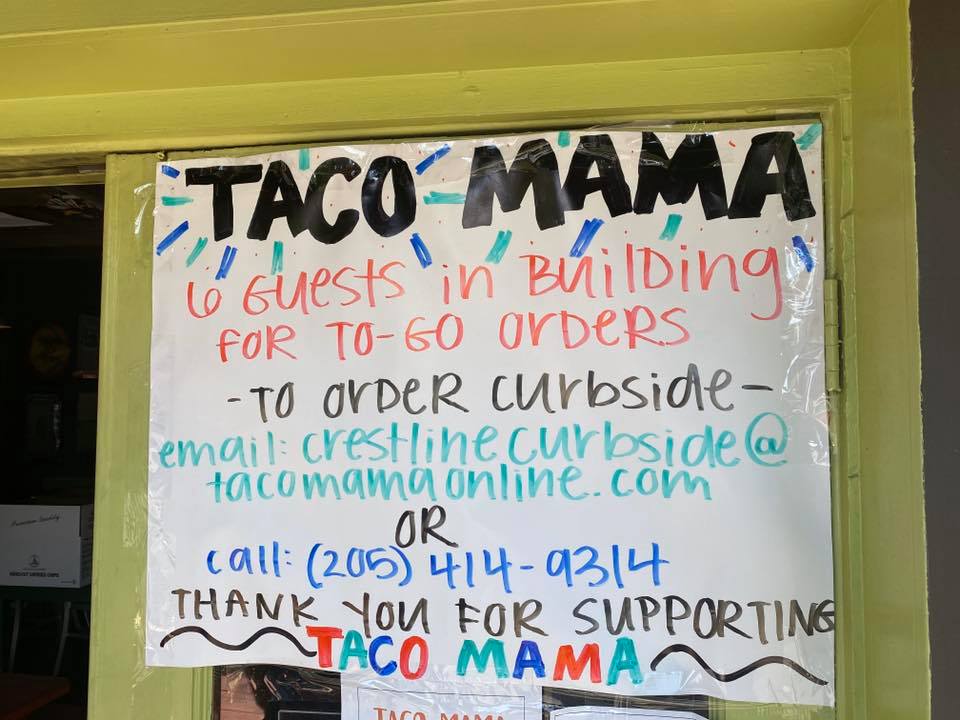 TACO MAMA
6 GUESTS in BuilDing
FOR TO-GO OrDERS
-TO OrDER Curbside-
email: crestlinecurbside@
tacomamaonline.com
OR
call: (205) 414-9314
THANK YOU FOR SUPPORTING
TACO MAMA
TACO MAMA